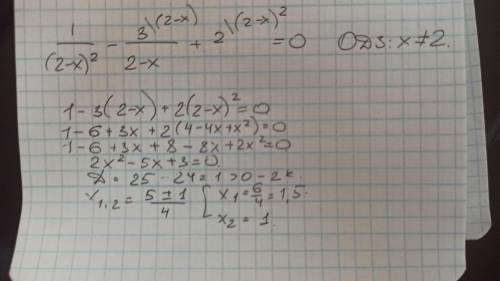 1/(2-x)² - 3\(2-x)/(2-x) + 2\(2-x)² = 0 ОДЗ: x≠2.
1-3(2-x)+2(2-x)²=0
1-6+3x+2(4-4x+x²)=0
1-6+3x+8-8x+2x²=0
2x²-5x+3=0
D = 25-24=1>0-2к.
x₁,₂ = (5±1)/4 [ x₁=6/4=1,5.
x₂=1.